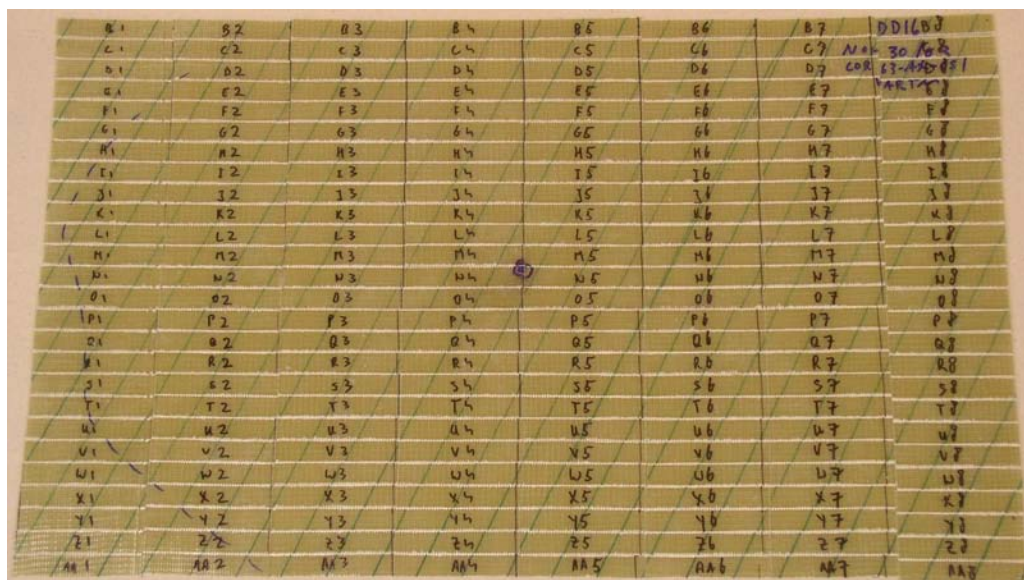 B1 B2 B3 B4 B5 B6 B7 B8
DD16
C1 C2 C3 C4 C5 C6 C7 C8
NOV 30
D1 D2 D3 D4 D5 D6 D7
COR
E1 E2 E3 E4 E5 E6 E7 E8
F1 F2 F3 F4 F5 F6 F7 F8
G1 G2 G3 G4 G5 G6 G7 G8
H1 H2 H3 H4 H5 H6 H7 H8
I1 I2 I3 I4 I5 I6 I7 I8
J1 J2 J3 J4 J5 J6 J7 J8
K1 K2 K3 K4 K5 K6 K7 K8
L1 L2 L3 L4 L5 L6 L7 L8
M1 M2 M3 M4 M5 M6 M7 M8
N1 N2 N3 N4 N5 N6 N7 N8
O1 O2 O3 O4 O5 O6 O7 O8
P1 P2 P3 P4 P5 P6 P7 P8
Q1 Q2 Q3 Q4 Q5 Q6 Q7 Q8
R1 R2 R3 R4 R5 R6 R7 R8
S1 S2 S3 S4 S5 S6 S7 S8
T1 T2 T3 T4 T5 T6 T7 T8
U1 U2 U3 U4 U5 U6 U7 U8
V1 V2 V3 V4 V5 V6 V7 V8
W1 W2 W3 W4 W5 W6 W7 W8
X1 X2 X3 X4 X5 X6 X7 X8
Y1 Y2 Y3 Y4 Y5 Y6 Y7 Y8
Z1 Z2 Z3 Z4 Z5 Z6 Z7 Z8
AA1 AA2 AA3 AA4 AA5 AA6 AA7 AA8